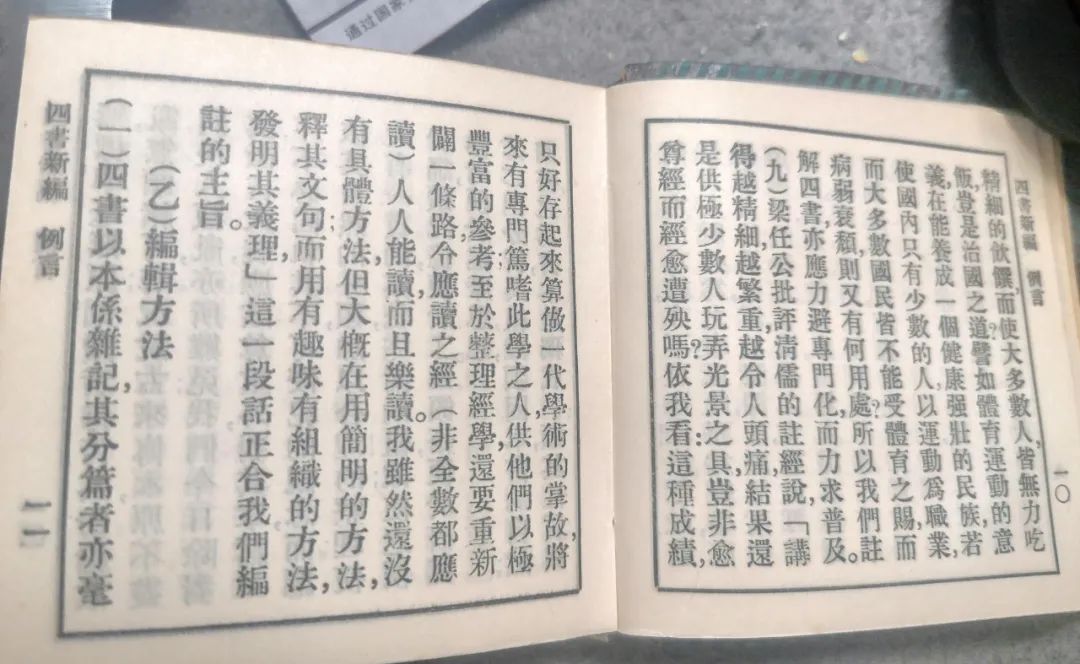 通过国家
四書新編 例言
一〇
精細的飲饌,而使大多數人,皆無力吃
飯,豈是治國之道?譬如體育運動的意
義,在能養成一個健康强壯的民族,若
使國內只有少數的人,以運動爲職業,
而大多數國民皆不能受體育之賜,而
病弱衰頹,則又有何用處?所以我們註
解四書,亦應力避專門化,而力求普及。
(九)梁任公批評清儒的註經說,「講
得越精細,越繁重,越令人頭痛,結果還
是供極少數人玩弄光景之具,豈非愈
尊經而經愈遭殃嗎?依我看:這種成績,
只好存起來算做一代學術的掌故,將
來有專門篤嗜此學之人,供他們以極
豐富的參考;至於整理經學,還要重新
闢一條路,令應讀之經(非全數都應
讀)人人能讀而且樂讀。我雖然還沒
有具體方法,但大概在用簡明的方法,
釋其文句,而用有趣味有組織的方法,
發明其義理,」這一段話正合我們編
註的主旨。
(乙)編輯方法
(一)四書以本係雜記,其分篇者亦毫
四書新編 例言
一一